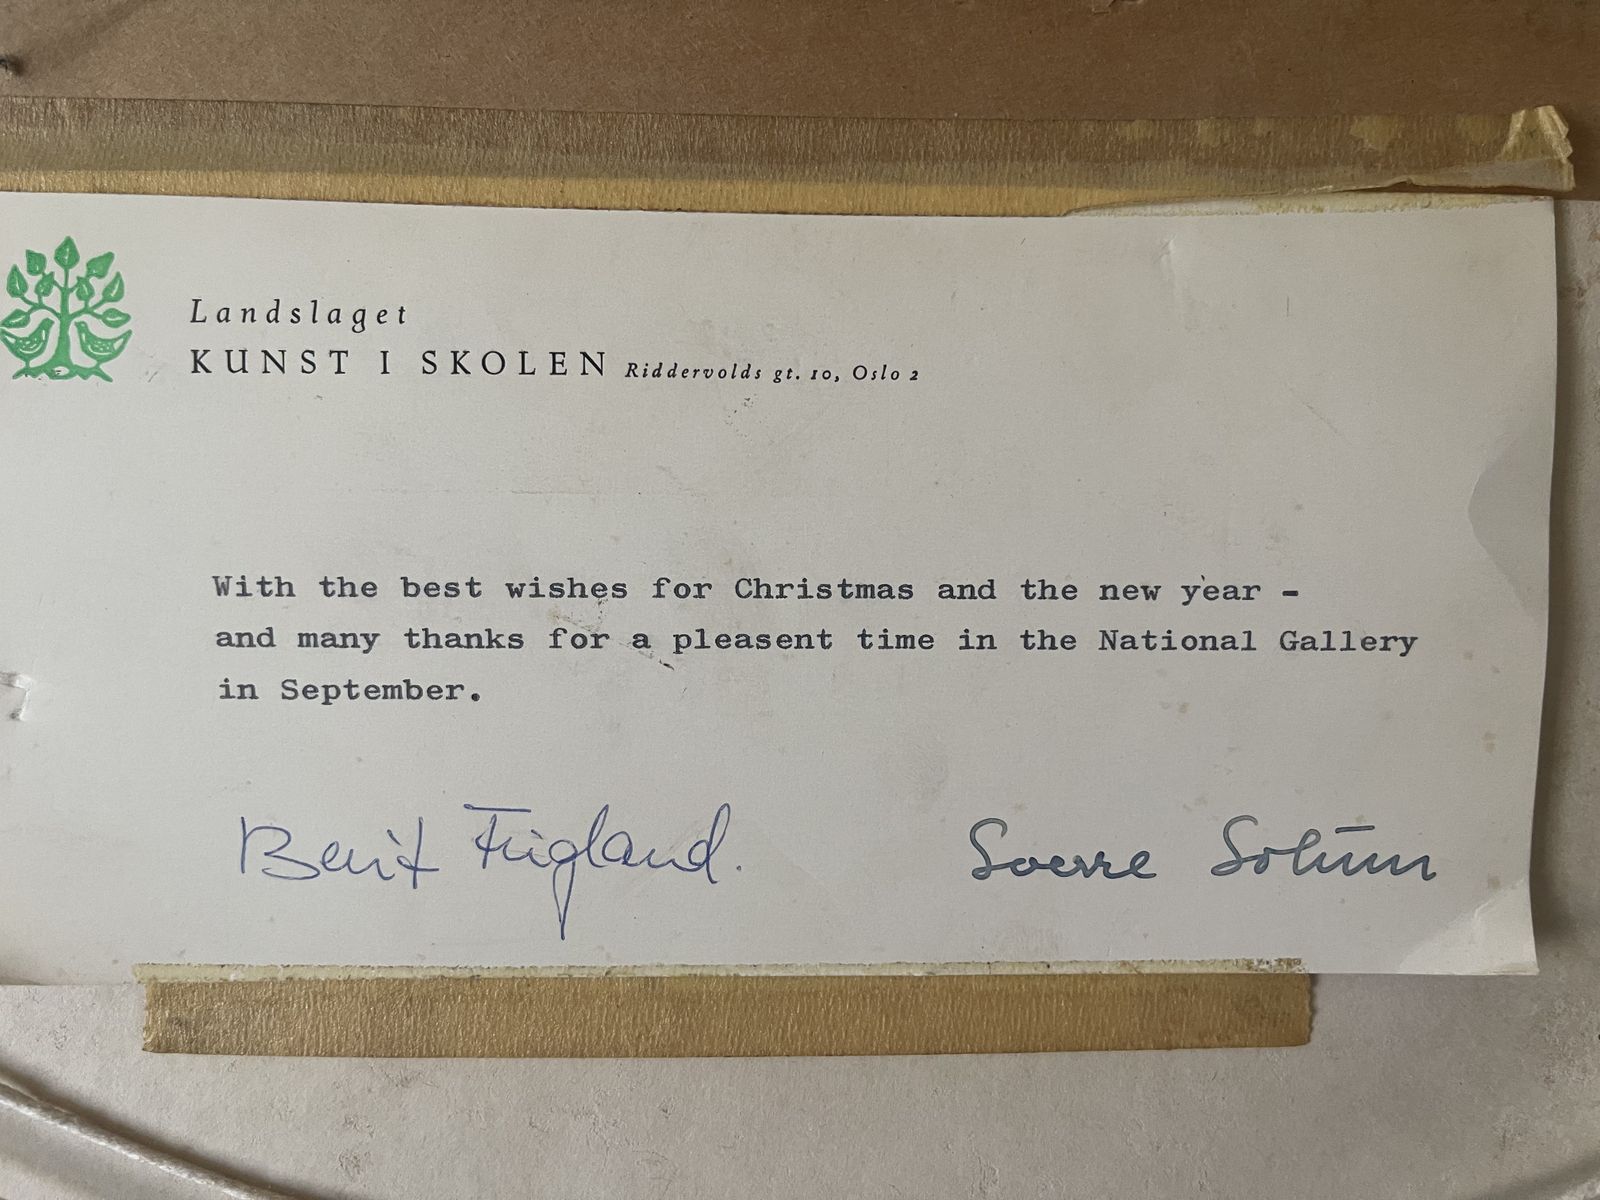 Landslaget
KUNST I SKOLEN Riddervolds gt. 10, Oslo 2
With the best wishes for Christmas and the new year -
and many thanks for a pleasent time in the National Gallery
in September.
Berit